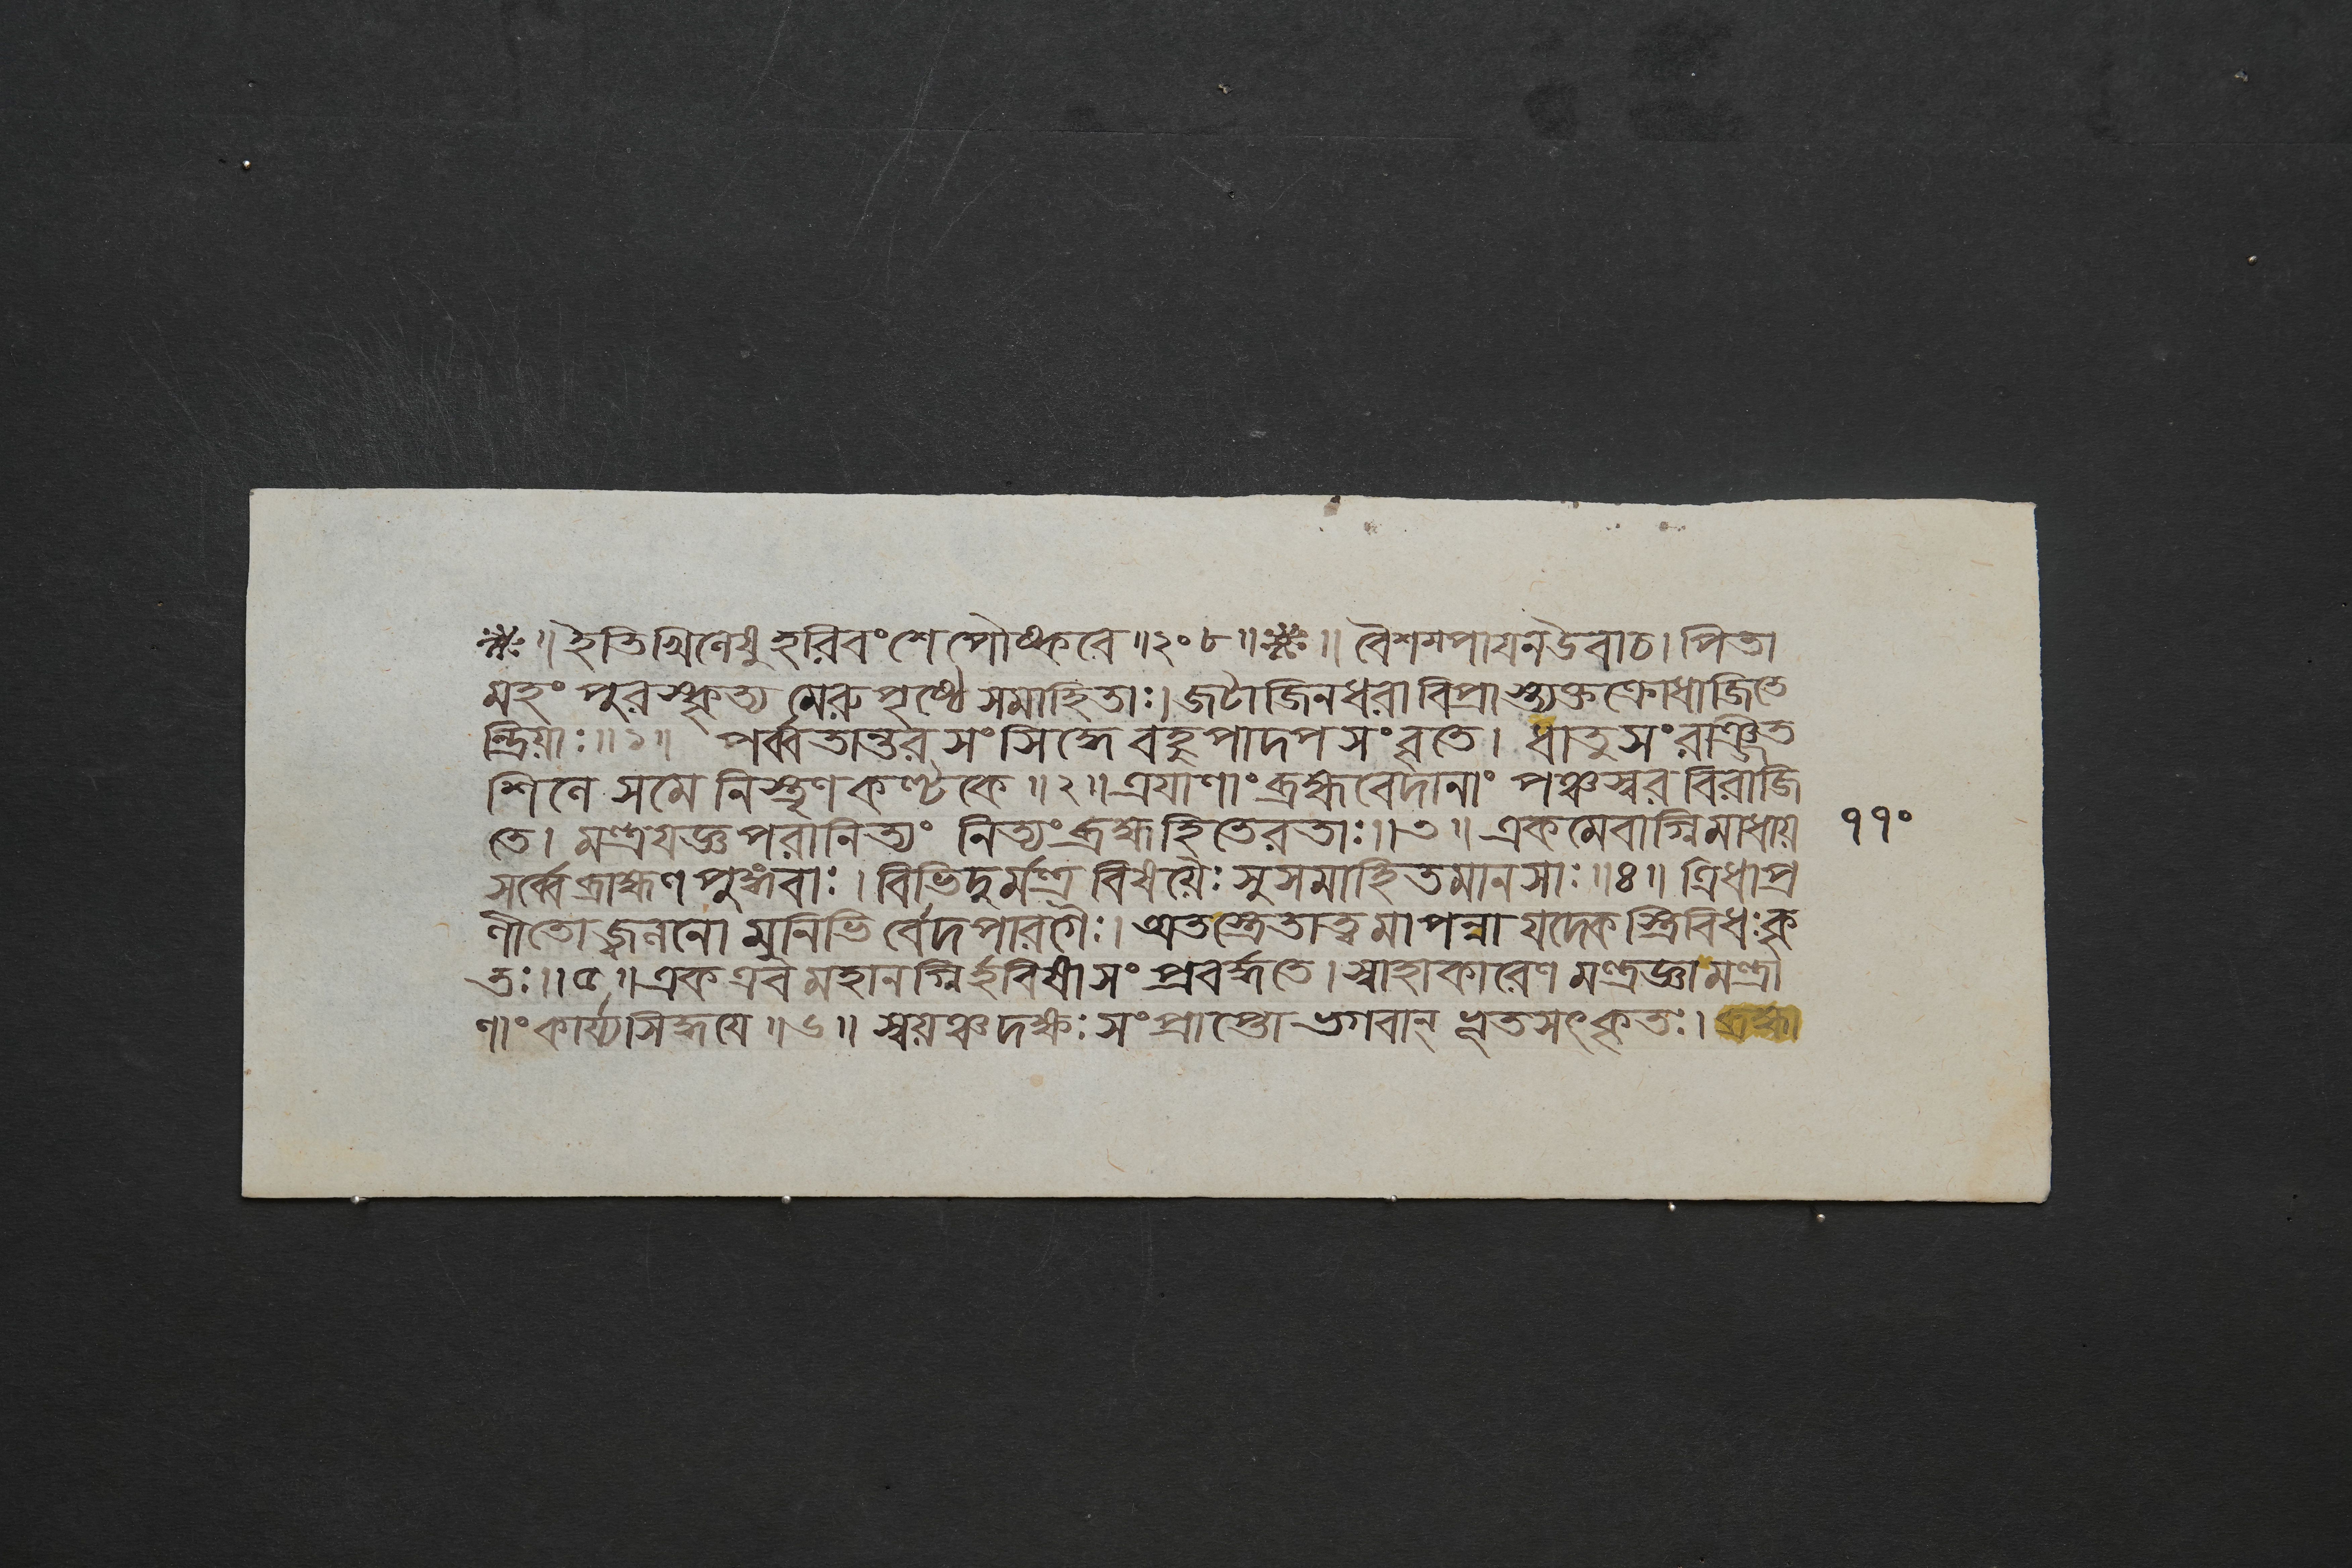 ॥ ইতি খিলেষু হরিবংশে পৌষ্করে ॥ ২০৮ ॥ ॥ বৈশম্পায়ন উবাচ। পিতা
মহং পুরস্কৃত্য মেরুপৃষ্ঠে সমাহিতাঃ। জটাজিনধরা বিপ্রাস্ত্যক্তক্রোধা জিতে
ন্দ্রিয়াঃ ॥ ১ ॥ পর্ব্বতান্তরসংসিদ্ধে বহুপাদপসংবৃতে। ধাতুসংরঞ্জিত
শিলে সমে নিস্তৃণকণ্টকে ॥ ২ ॥ ত্রয়াণাং ব্রহ্মবেদানাং পঞ্চস্বরবিরাজি
তে। মন্ত্রযজ্ঞপরা নিত্যং নিত্যং ব্রহ্মহিতে রতাঃ ॥ ৩ ॥ একমেবাগ্নিমাধায়
সর্ব্বে ব্রাহ্মণপুঙ্গবাঃ। বিভিদুর্মন্ত্রবিষয়ৈঃ সুসমাহিতমানসাঃ ॥ ৪ ॥ ত্রিধা প্র
ণীতো জ্বলনো মুনিভির্বেদপারগৈঃ। অতস্ত্রেতাত্বমাপন্না যদেকস্ত্রিবিধঃ কৃ
তঃ ॥ ৫ ॥ এক এব মহানগ্নির্হবিষা সংপ্রবর্দ্ধতে। স্বাহাকারেণ মন্ত্রজ্ঞা মন্ত্রা
ণাং কার্য্যসিদ্ধয়ে ॥ ৬ ॥ স্বয়ঞ্চ দক্ষঃ সংপ্রাপ্তো ভগবান্ ভূতসৎকৃতঃ। ব্রহ্মা
११०